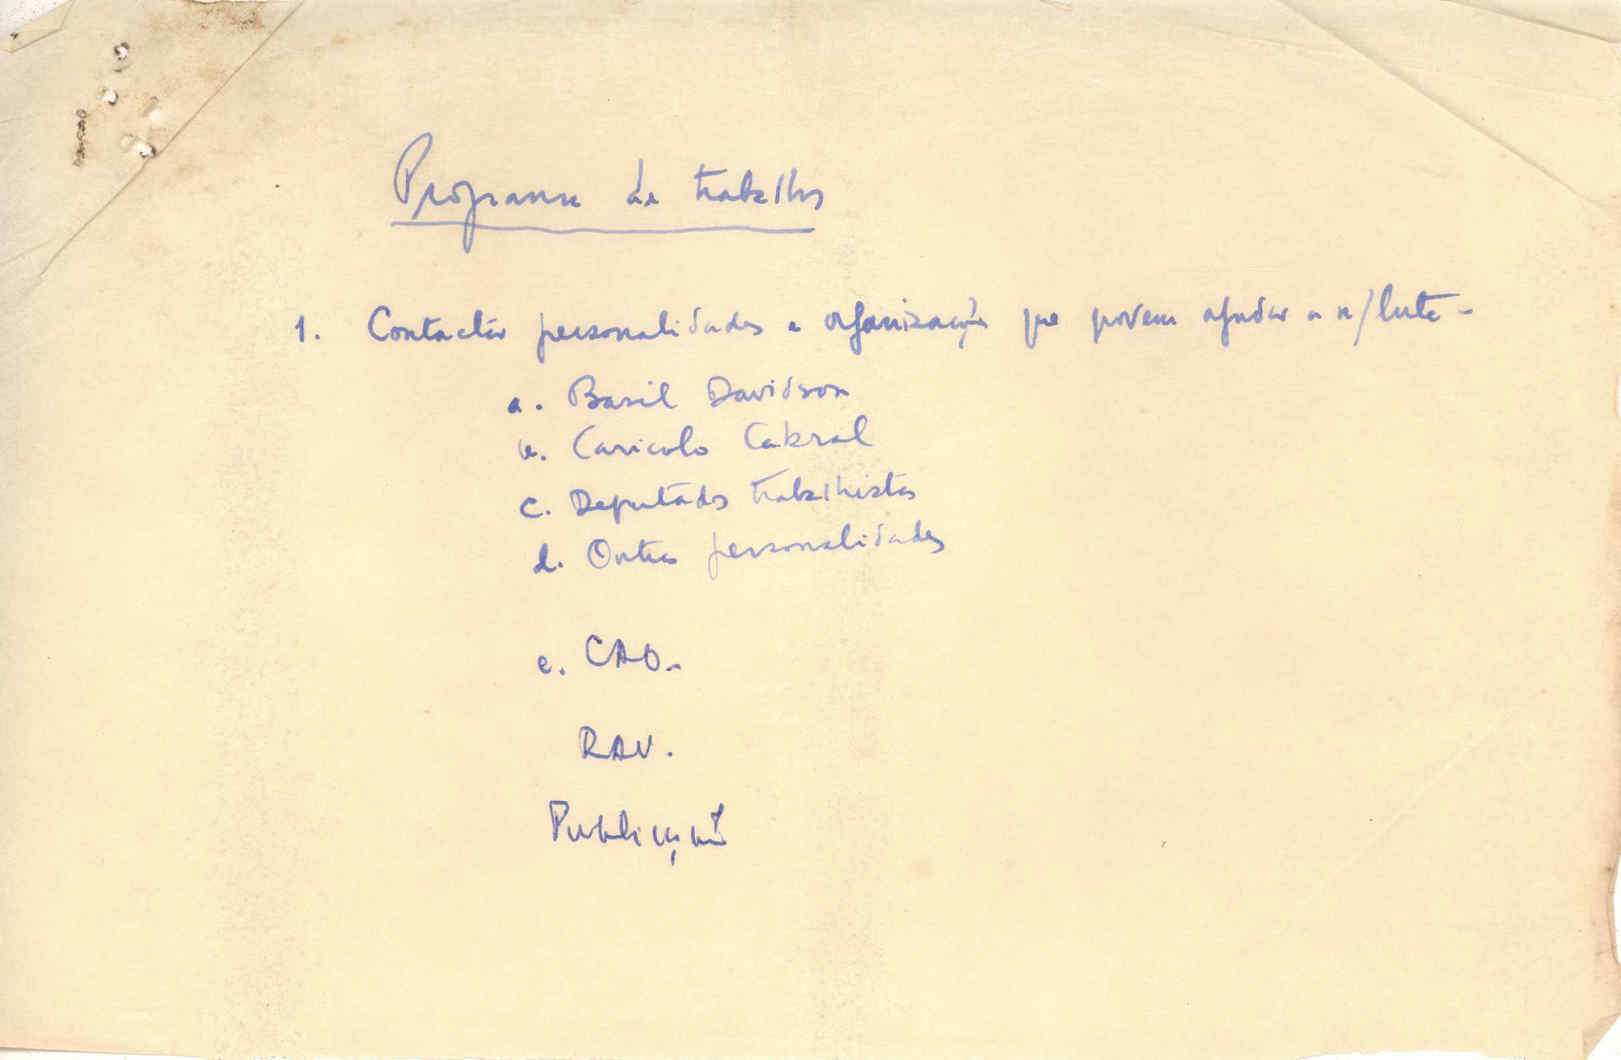 Programa de trabalhos
1. Contactar personalidades e organizações que podem ajudar a n/luta -
a. Basil Davidson
b. Cabral
c. Deputados trabalhistas
d. Outras personalidades
e. CAO.-
RAU.
Publicações